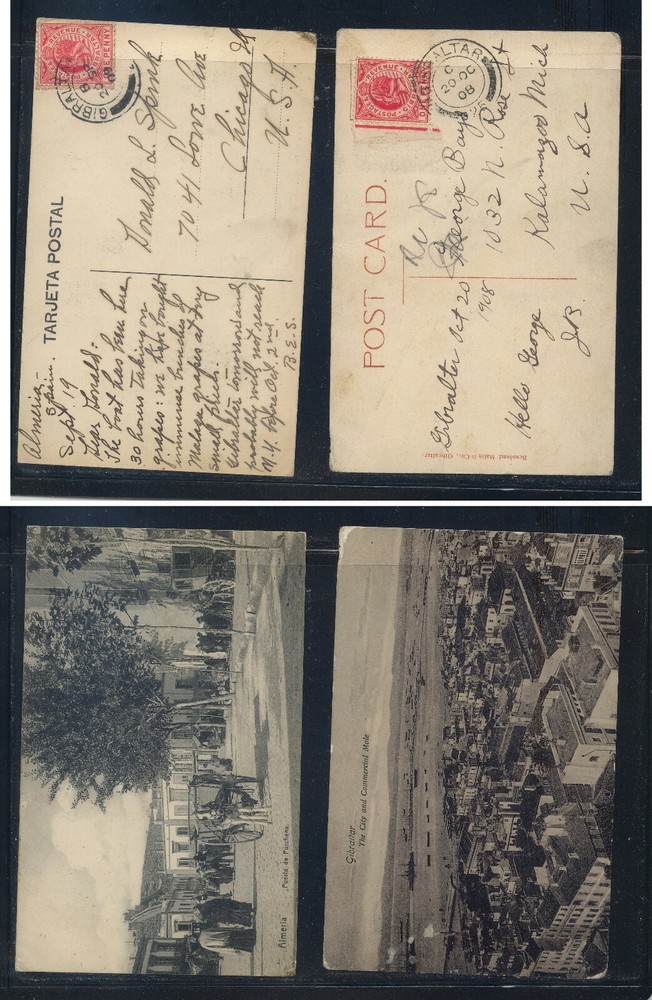 TARJETA POSTAL
Almeria -
Spain.
Sept. 19
Dear Donald:
The boat has been here
30 hours taking on
grapes: we have bought
immense bunches of
Malaga grapes at very
small price.
Gibraltar tomorrow and
probably will not reach
N.Y. before Oct. 2nd.
B.E.S.
Donald L. Spink
7041 Lowe Ave
Chicago
U.S.A.
GIBRALTAR
POSTAGE & REVENUE
ONE PENNY
POST CARD.
Gibralter Oct 20
1908
Hello George
George Bays
1032 N. Rose St
Kalamazoo Mich
U.S.A
GIBRALTAR
OC
20
08
POSTAGE & REVENUE
Beanland, Malin & Co., Gibraltar.
Almería
Puerta de Purchena
Gibraltar
The City and Commercial Mole